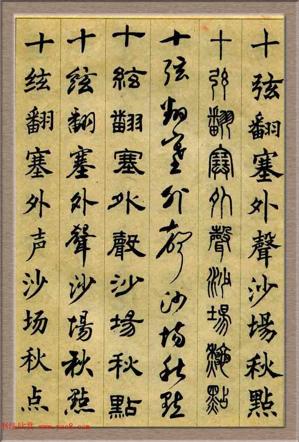 十弦翻塞外聲沙場秋點
十弦翻塞外聲沙場秋點
十弦翻塞外聲沙場秋點
十絃翻塞外聲沙場秋點
十絃翻塞外聲沙場秋點
十弦翻塞外声沙场秋点